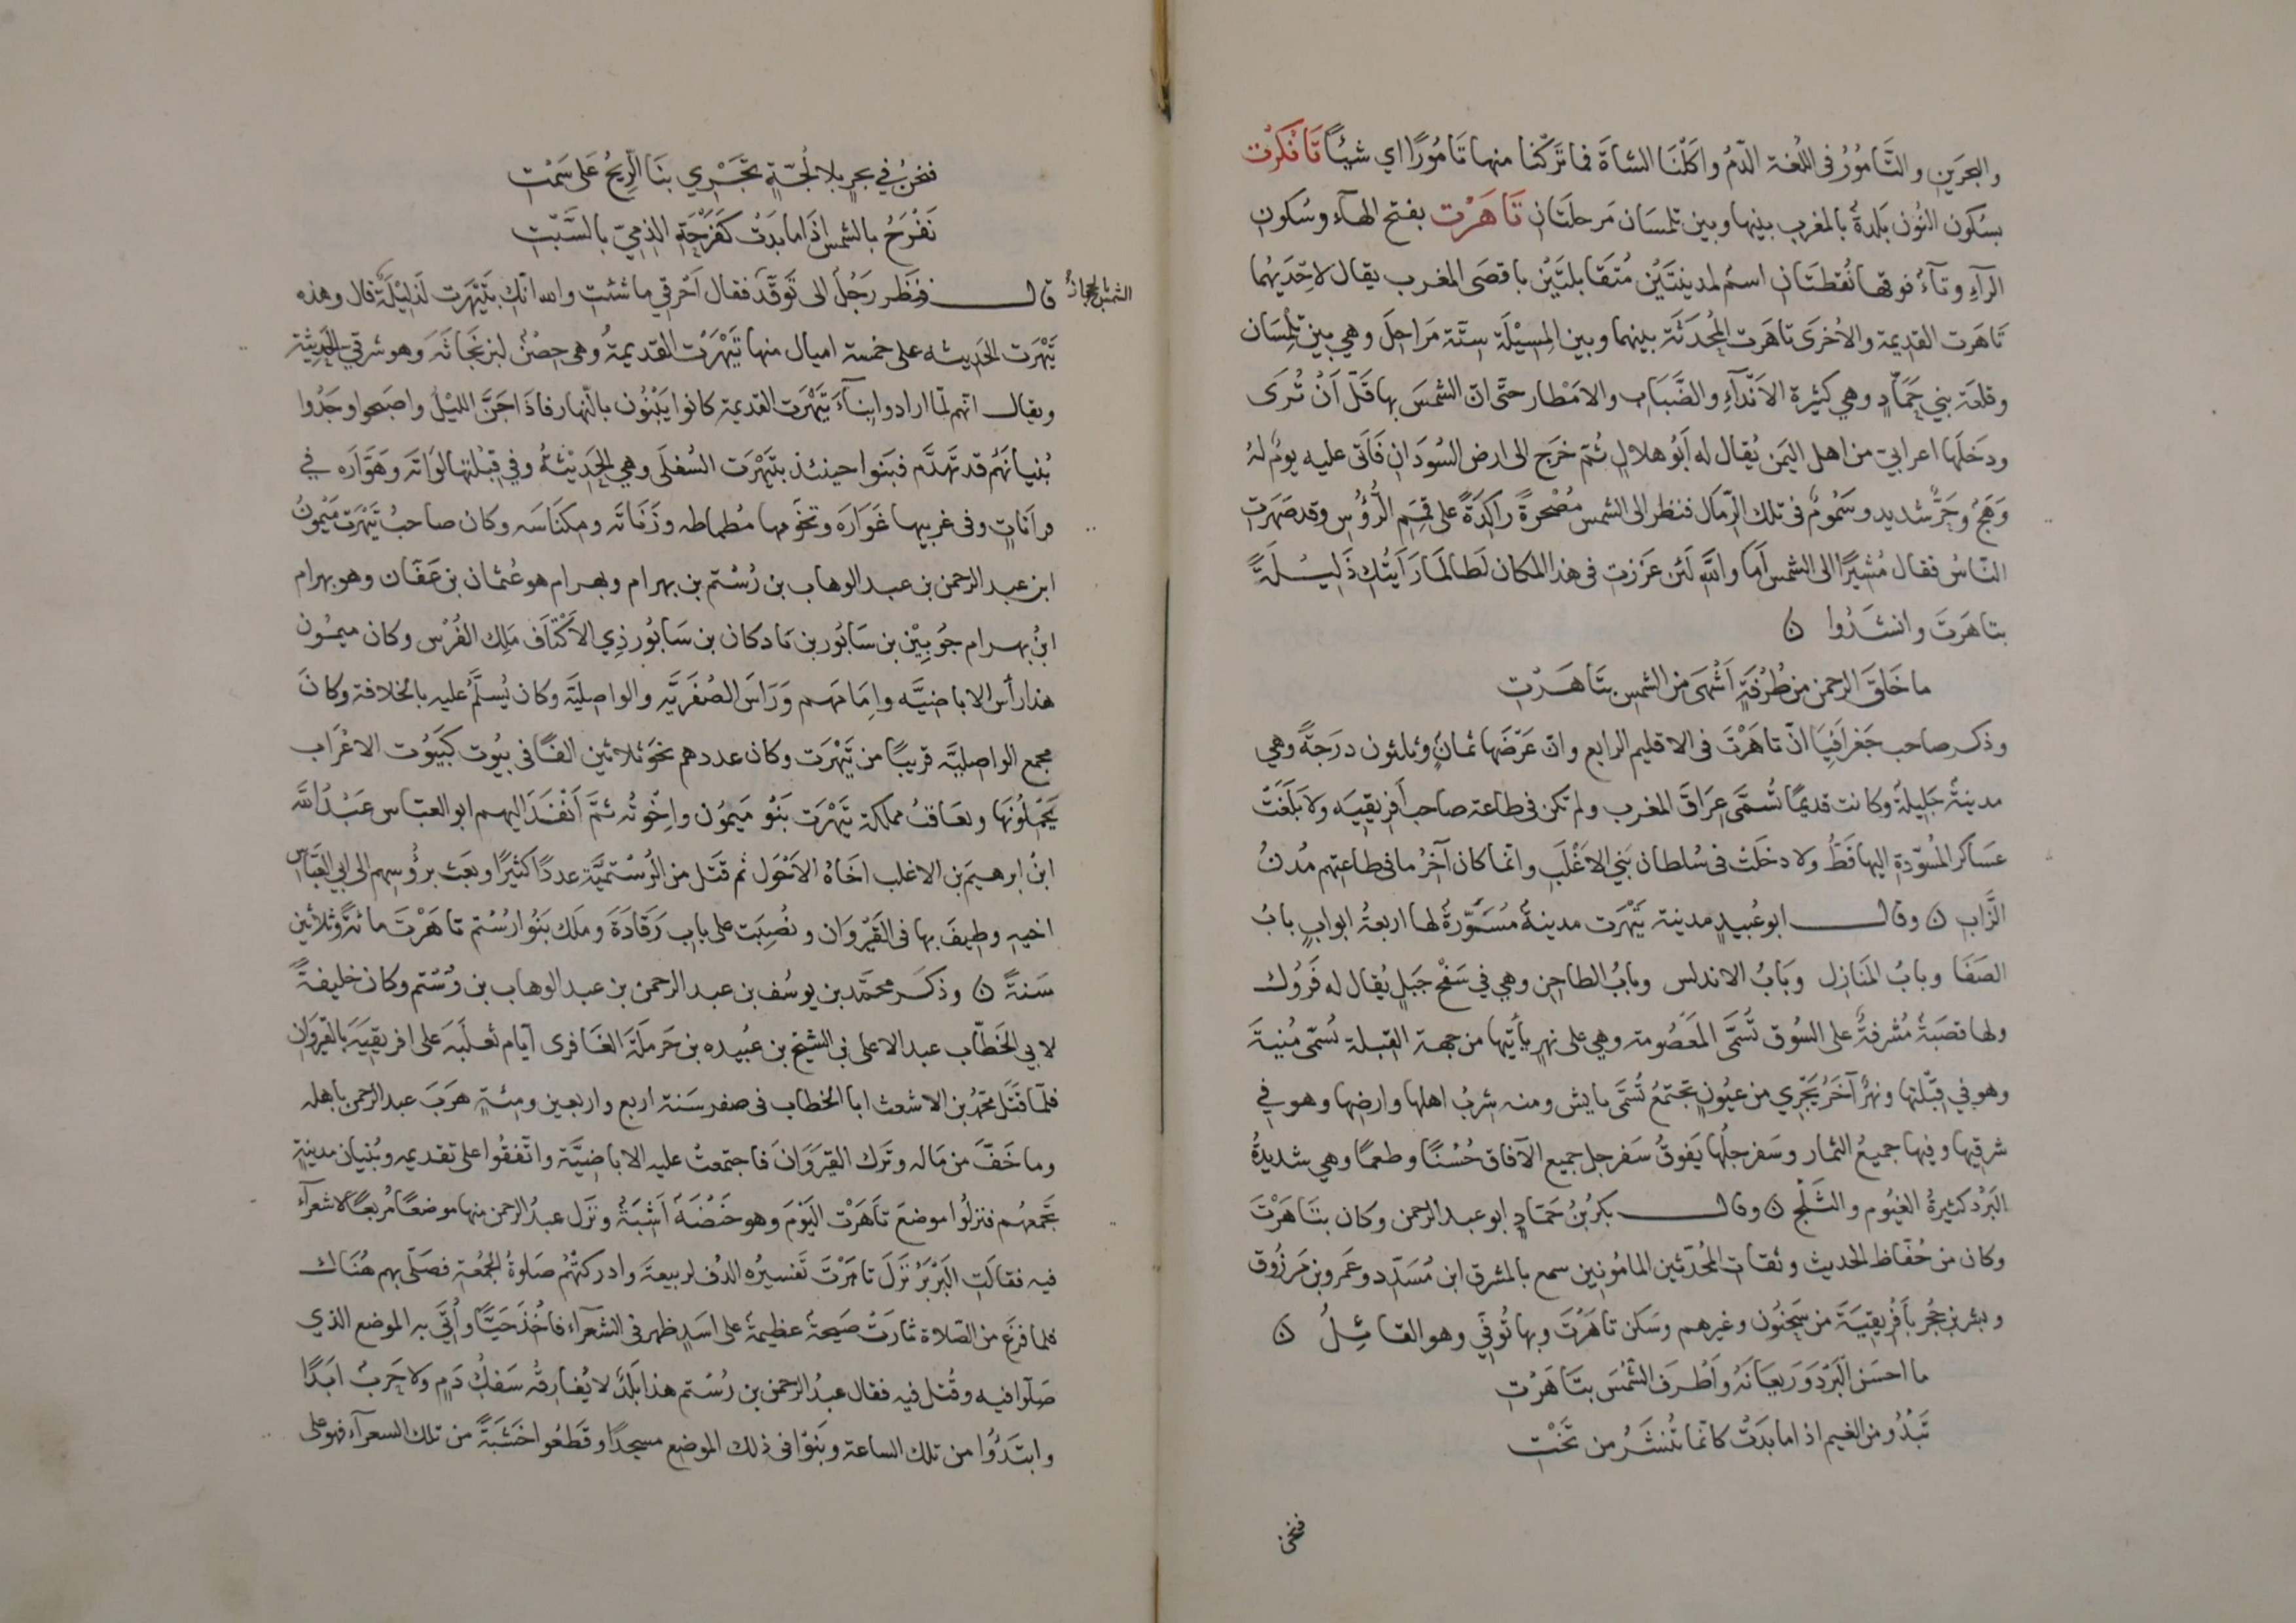 والبحرَين والتَّامُوُرُ فى اللغة الدّمُ واكَلْنَا الشاةَ فما تَرَكْنا منها تَامُورًا اي شيئًا تَانْكَرْت
بسُكون النُون بَلدةٌ بالمغرب بينها وبين تلمسَان مَرحلَتَان تَاهَرْت بفتح الهآء وسُكون
الرآءِ وتآءٌ فوقها نُقطتَانِ اسمٌ لمدينتَيْن مُتَقابلتَيْن باقصَى المغرب يقال لاحِدَيهُما
تَاهَرت القديمة والاُخرَى تاهَرت المُحدَثَة بينهما وبين المِسِيْلَة ستّة مَراحِلَ وهي بين تلِمسَان
وقلعَة بني حَمَّادٍ وهي كثيرة الاَنْدآءِ والضَّبَاب والامْطار حتّى انّ الشمسَ بها قَلّ اَنْ تُرَى
ودخَلَها اعرابيّ من اهل اليَمن يُقال له اَبُو هلالٍ ثُمّ خرَج الى ارض السُودَان فَاَتى عليه يومٌ لهُ
وَهَجٌ وحَرٌّ شديد وسَمُومٌ فى تلك الرّمَال فنظر الى الشمس مُصْحرةً رَاكَدَةً على قِمَمِ الرُّؤُس وقد صَهَرتِ
النّاسُ فقال مُشِيرًا الى الشمس اَمَا واللّهِ لَئن عَززتِ فى هذا المكان لَطالَمَا رَاَيتُكِ ذَلِيــلَةً
بتاهَرتَ وانشَدُوا ن
ما خَلَقَ الرحمن من طُرْفَةٍ اَشْهَى من الشمس بتَاهَـرْتِ
وذكر صاحب جَغرافَيِا انّ تاهَرْتَ فى الاقليم الرابع وانّ عَرْضَها ثمانٍ وثلثون درَجةً وهي
مدينةٌ جَلِيلةٌ وكانت قديمًا تُسمَّى عِرَاقَ المغرب ولم تكن فى طاعة صاحب اَفرِيقيَه ولا بَلَغَتْ
عسَاكر المُسوّدةِ اليها قَطُّ ولا دخلَتْ فى سُلطان بَني الاغْلَبِ وانّما كان آخرُ ما فى طاعتهم مُدنُ
الزَّابِ ن وقالــــ ابو عُبيدٍ مدينة تَيْهَرت مدينةٌ مُسَوَّرةٌ لها اربعةُ ابوابٍ بابُ
الصَفَا وبابُ المَنَازِل وبَابُ الاندلس وبابُ الطاحِن وهي في سَفْح جَبَلٍ يُقال له قَرُوُل
ولها قصَبَةٌ مُشرفةٌ على السُوق تُسَمَّى المَعصُومة وهي على نهرٍ يأتيها من جهة القبلة تُسمّى مُنيةَ
وهو في قِبْلتها ونهرٌ آخَرُ يَجْرِي من عيُونٍ تجتَمعُ تُسَمَّى مايش ومنه شِربُ اهلها وارضِها وهو في
شرقيها وفيها جميعُ الثمار وسَفرجلُها يَفوقُ سَفرجل جميع الآفاق حُسْنًا وطعمًا وهي شديدةُ
البَرْد كثيرةُ الغيُوم والثَلْج ن وقالــــ بكرُ بنُ حَمَادٍ ابو عبد الرحمن وكان بتَاهَرْتَ
وكان من حُفّاظ الحديث وثقات المُحدّثين المامُونين سمع بالمشرق ابن مُسَدّد وعَمرو بن مَرزُوق
وبشر بن حُجر بأَفْرِيقيّةَ من سَحنُون وغيرهم وسَكن تاهَرْتَ وبها تُوفّي وهو القائِلُ ن
ما احسَن الَبرْدَ وَريعَانَهُ واَطْرفَ الشَّمْسَ بتَاهَرْتِ
تَبْدُو من الغيم اذا ما بَدَتْ كانّما تُنشَـرُ من تَخْتِ
فنحن
فنحنُ في بحرٍ بلا لُجّةٍ تَجْـرِي بنَا الرِيحُ عَلى سَمْتِ
نَفْرَحُ بالشمس اذَا ما بَدَتْ كَفَرْحَةِ الذِمّيّ بالسَّبْتِ
قالــــ ونَظَر رَجُلٌ الى تَوَقُّد فقال اَحْرِقي ما شئتِ والله انكِ بتَيْهَرت لذَلِيْلَةٌ قال وهذه
تَيْهَرت الحَديثه على خمسة اميال منها تَيْهَرْت القديمةُ وهى حِصْنٌ لبرنجَانَه وهو شرقي الحديثة
ويقال انهم لمّا ارادوا بِنآءَ تَيْهَرت القديمة كانوا يَبْنُون بالنّهار فاذَا جَنَّ الليْلُ واصبَحوا وجَدُوا
بُنيانَهُم قد تَهَدَّم فبَنوا حينئذ بتَيْهَرْت السُفلَى وهي الحَدِيْثَةُ وفي قِبْلتها لوَاتَه وهَوَّارَه في
قرانَاتٍ وفى غربيها غَوَارَه وبجَوفها مُطماطه وزَنَاتَه ومِكنَاسَه وكان صاحبُ تَيْهَرْت مَيْمونُ
ابن عبد الرحمن بن عبد الوهاب بن رُسْتم بن بهرام وبهرام هو عُثمان بن عَفّان وهو بهرام
ابنُ بهرام جُوبِيْن بن سَابُور بن بَادكان بن سَابُور ذِي الاَكْتَاَف مَلِك الفُرْس وكان ميمُون
هذا رأسُ الاباضيَّه وإمَامَهم وَرَأسَ الصُفْرَيَّه والواصليَّة وكان يُسلَّمُ عليه بالخلافة وكانَ
مجمع الواصليَّه قريبًا من تَيْهَرت وكان عددهم نحوَ ثلاثين الفًا فى بيُوت كبَيُوت الاعْرَاب
يَحْمِلُونَها وتعَاقبُ مملكة تَيْهَرت بَنُو مَيمُون واِخْوتُه ثمَّ اَنْفـذَ اليهم ابو العبّاس عَبْدُاللّه
ابنُ ابرهيمَ بن الاغلب اخَاهُ الاَحْول ثم قَتَل من الرُسْتميَّة عددًا كثيرًا وبعَث برُؤُسِهم الى ابي العَبَّاس
اخيهِ وطِيفَ بها فى القَيْرَوَان ونُصِبَت على باب رَقادَةَ ومَلك بَنُوا رُسْتم تَاهَرْتَ مائةً وثلاثين
سَنةً ن وذكَـر محمّد بن يوسُف بن عبد الرحمن بن عبد الوهاب بن رُسْتم وكان خليفةً
لابي الخَطّاب عبد الاعلى بن الشيخ بن عبُيده بن حَرمَلَة الغَافرى اَيّام تغلّبَه على افريقيَة بالقيروَان
فلمّا قتَل محمّدُ بن الاشعث ابا الخطاب فى صفر سَنة اربع واربعين ومئةٍ هَرَبَ عبد الرحمن باهله
وما خَفَّ من مَاله وتَرك القيرَوَانَ فاجتمعتْ عليه الاباضِيَّة واتّفقُوا على تقديمه وبُنيان مدينةٍ
تَجمَعهُم فنزلُوا موضعَ تاهَرْت اليَوْمَ وهو غَيْضَةٌ اَشْبَةٌ ونَزل عبدُ الرحمن منها موضعًا مُربعًا لا شعرآءَ
فيه فقالَتِ البَرْبَرُ نَزَلَ تاهَرْتَ تفسيرُه الدُف لربيعةَ وادركَتْهُم صَلوةُ الجُمُعة فصَلَّى بهم هُنَاك
فلما فرَغ من الصّلاة ثارَتْ صَيحةٌ عظيمةٌ على اسَدٍ ظهر فى الشّعرآء فاُخذَ حَيًّا واُتِيَ به الموضع الذي
صَلّوا فيه وقُتل فيه فقال عبدُ الرحمن بن رُسْتم هذا بَلَدٌ لا يُفارقُه سَفكُ دَمٍ ولا حَربٌ ابَدًا
وابتَدَؤُا من تلك الساعة وبَنوْا فى ذلك الموضع مسجدًا وقَطَعُوا خشَبَةً من تلك السعرآء فهو على